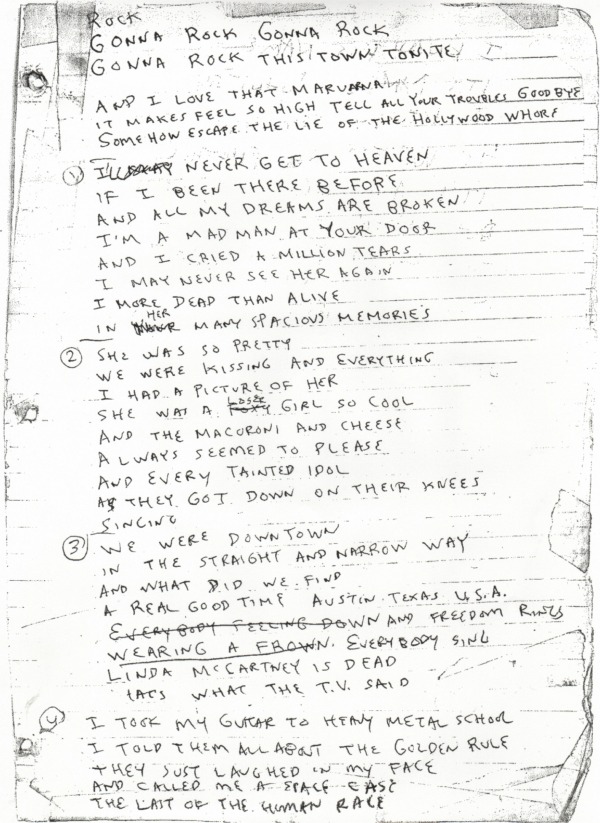 ROCK
GONNA ROCK GONNA ROCK
GONNA ROCK THIS TOWN TONITE
AND I LOVE THAT MARUANA
IT MAKES FEEL SO HIGH TELL ALL YOUR TROUBLES GOODBYE
SOMEHOW ESCAPE THE LIE OF THE HOLLYWOOD WHORE
1 I'LL NEVER GET TO HEAVEN
IF I BEEN THERE BEFORE
AND ALL MY DREAMS ARE BROKEN
I'M A MAD MAN AT YOUR DOOR
AND I CRIED A MILLION TEARS
I MAY NEVER SEE HER AGAIN
I MORE DEAD THAN ALIVE
IN HER MANY SPACIOUS MEMORIES
2 SHE WAS SO PRETTY
WE WERE KISSING AND EVERYTHING
I HAD A PICTURE OF HER
SHE WAS A LOSER FOXY GIRL SO COOL
AND THE MACORONI AND CHEESE
ALWAYS SEEMED TO PLEASE
AND EVERY TAINTED IDOL
AS THEY GOT DOWN ON THEIR KNEES
SINGING
3 WE WERE DOWNTOWN
IN THE STRAIGHT AND NARROW WAY
AND WHAT DID WE FIND
A REAL GOOD TIME AUSTIN TEXAS U.S.A.
EVERYBODY FEELING DOWN AND FREEDOM RINGS
WEARING A FROWN. EVERYBODY SING
LINDA MCCARTNEY IS DEAD
TATS WHAT THE T.V. SAID
4 I TOOK MY GUTAR TO HEAVY METAL SCHOOL
I TOLD THEM ALL ABOUT THE GOLDEN RULE
THEY JUST LAUGHED IN MY FACE
AND CALLED ME A SPACE CASE
THE LAST OF THE HUMAN RACE